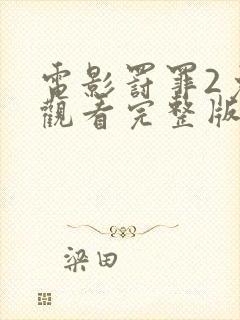 電影罰罪2
觀看完整版
梁田